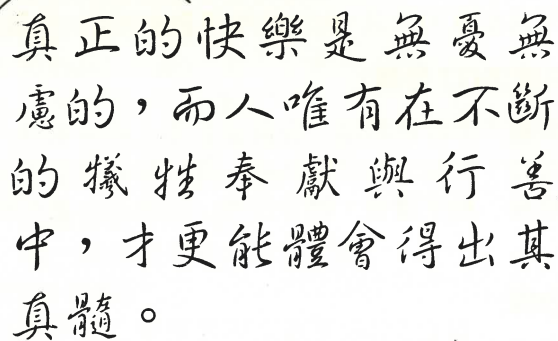 真正的快樂是無憂無
慮的，而人唯有在不斷
的犧牲奉獻與行善
中，才更能體會得出其
真髓。